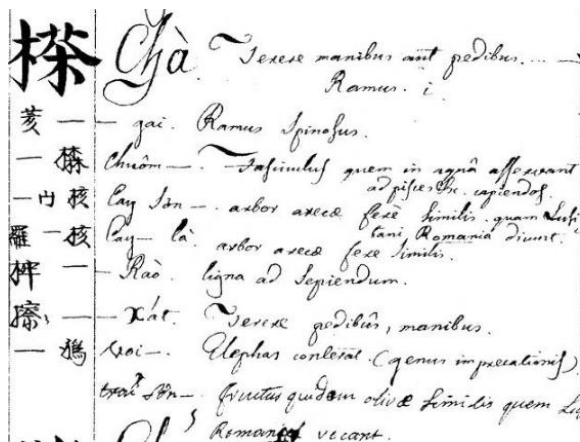 㭨 Chà Terere manibus aut pedibus. ...
Ramus. i
荄 — — gai. Ramus Spinosus.
— Chuôm — . Fasciculus quem in aquâ asservant
ad pisces &c. capiendos.
— 内 核 Cay Sơn — . arbor arecæ ferè similis quam Lusi
tani Romania dicunt.
羅 — 核 Cay — là arbor arecæ fere similis.
— — Rào ligna ad Sepiendum.
擦 — — Xát. Terere pedibus, manibus.
— Voi — . Elephas conterat. (genus imprecationis)
trái Sơn — . fructus quidem olivæ Similis quem Lu
Romania vocant.